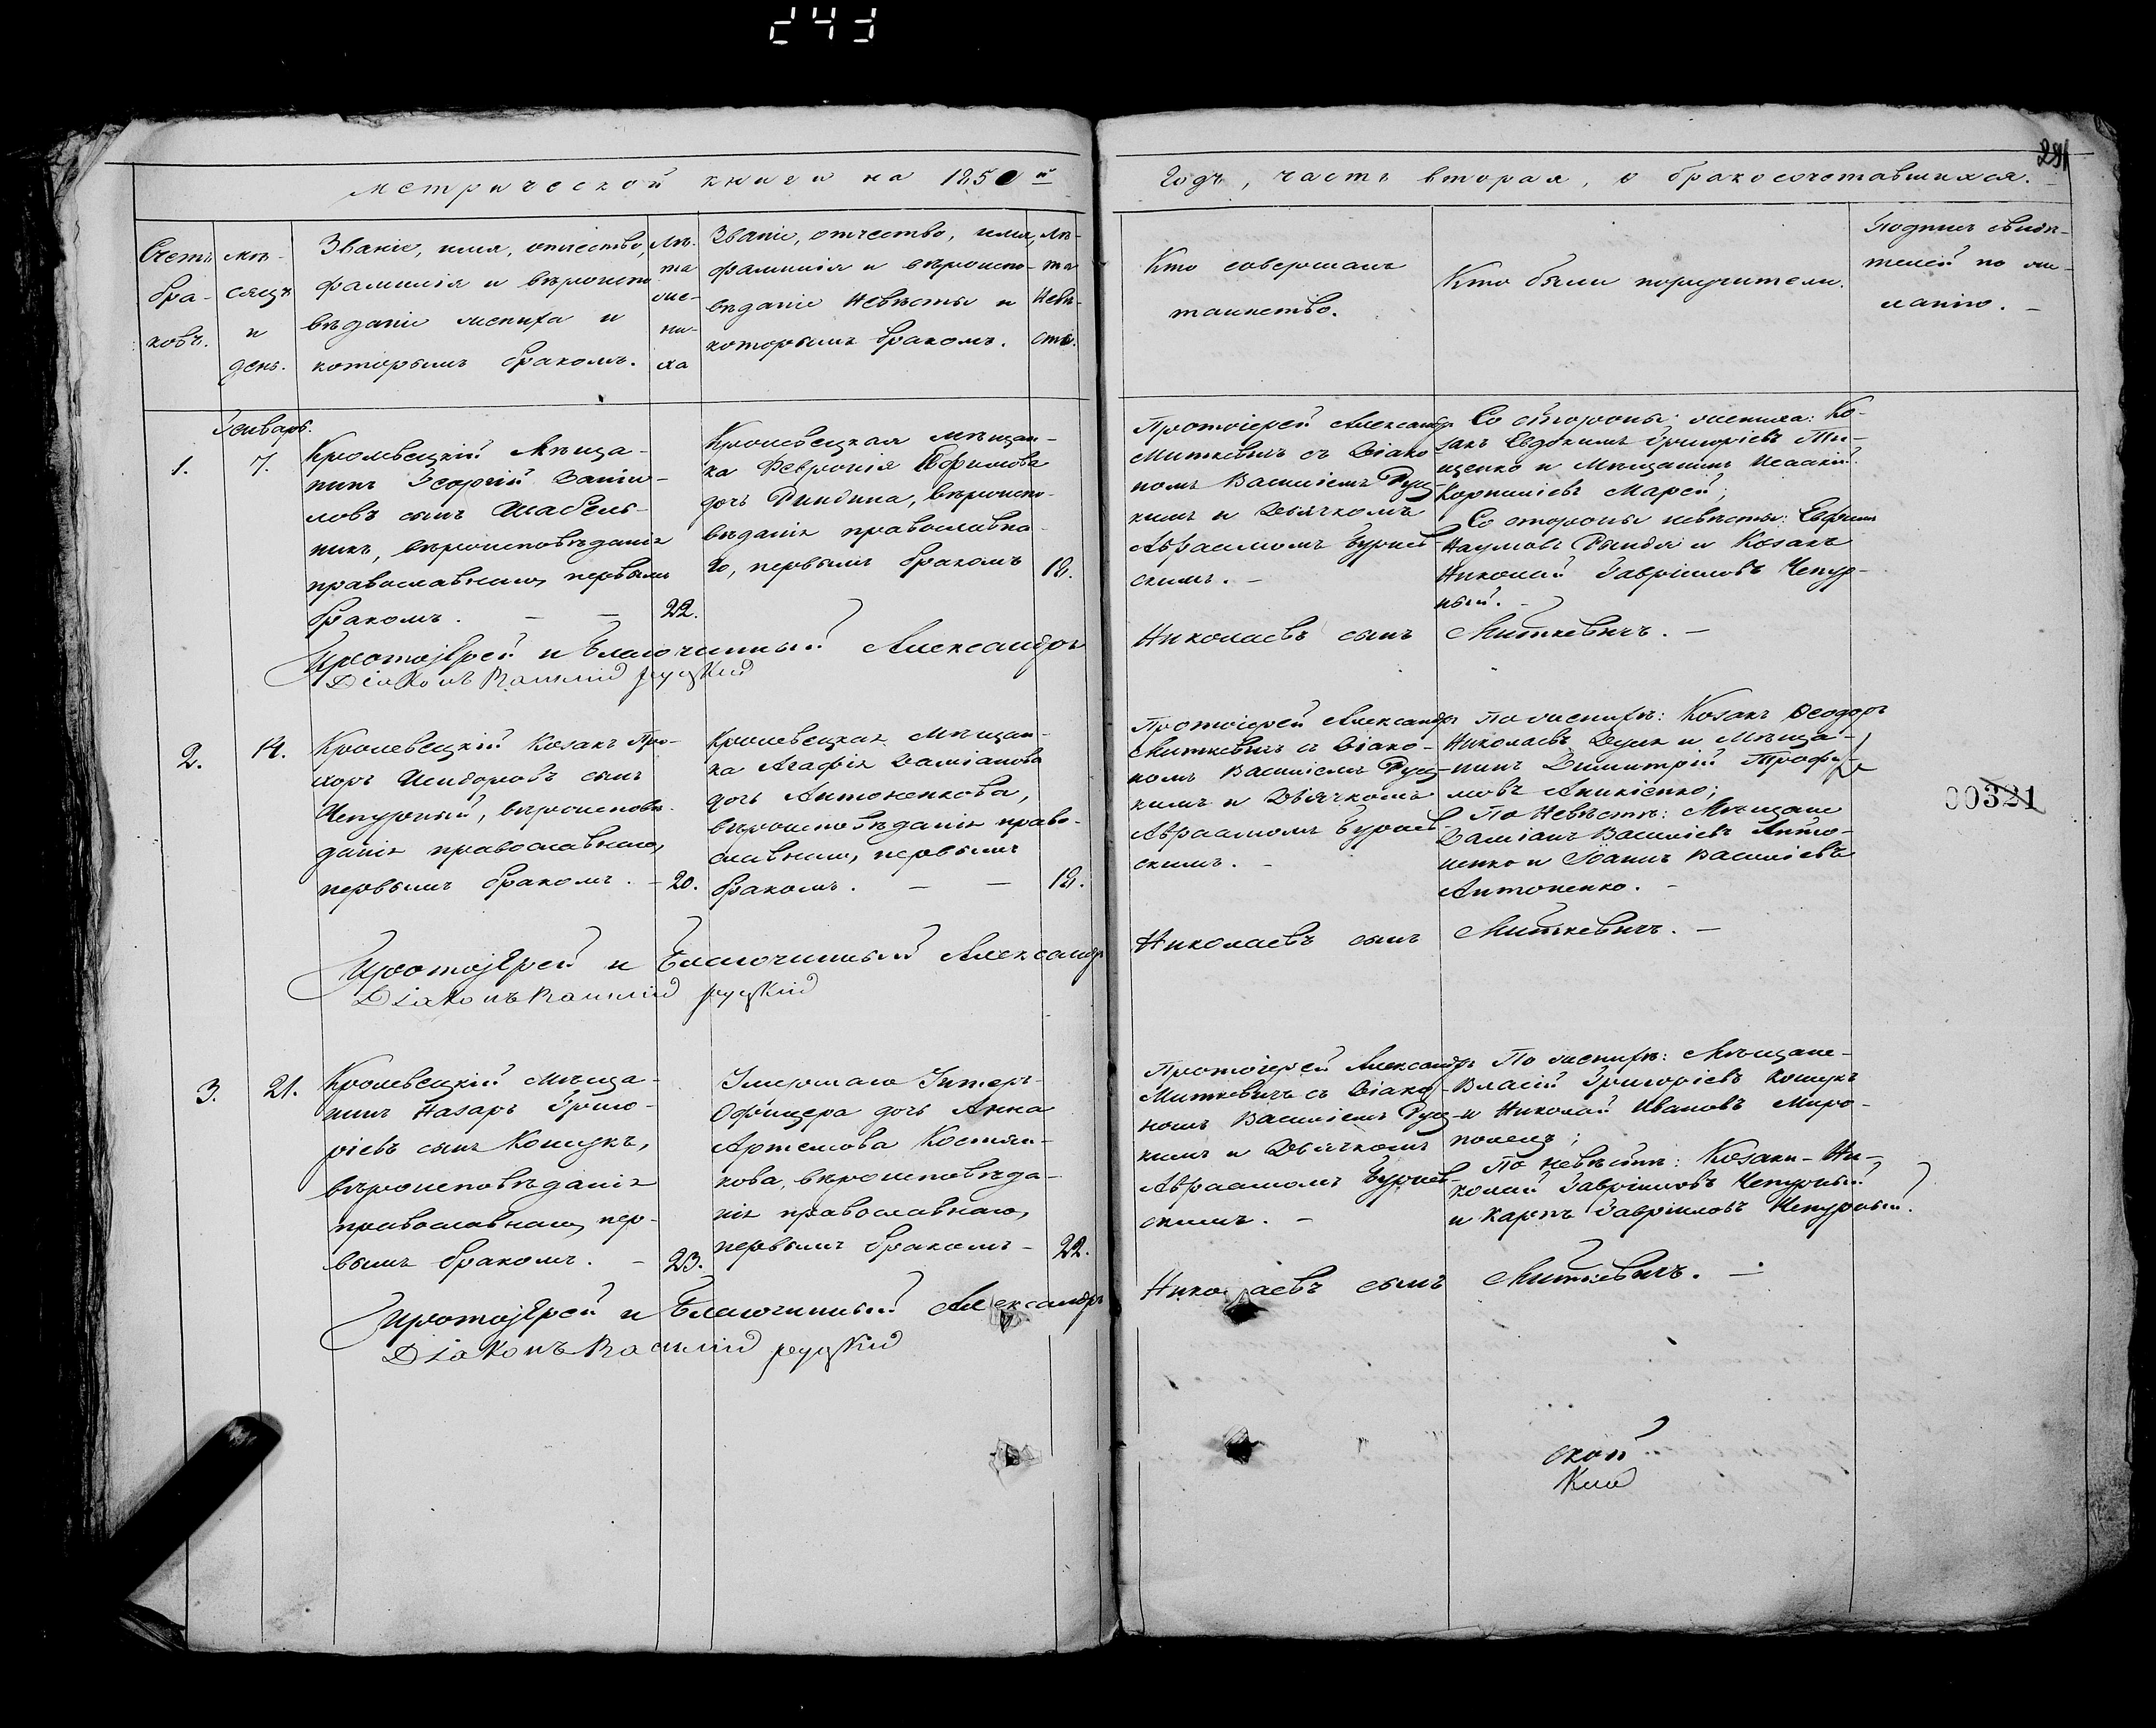 243
291
Метрической книги на 1850 й
Годъ, часть вторая, о бракосочетавшихся.
Счетъ
бра-
ковъ.
мѣ-
сяцъ
и
день.
Званіе, имя, отчество,
фамилія и вѣроиспо
вѣданіе жениха и
которымъ бракомъ.
Лѣ-
та
же-
ни-
ха
Званіе, отчество, имя,
фамилія и вѣроиспо-
вѣданіе Невѣсты и
которымъ бракомъ.
Лѣ-
та
Невѣ-
сты.
Кто совершалъ
таинство.
Кто были поручители.
Подпись свидѣ-
телей по же-
ланію. -
Генварь.
1.
7.
Кролевецкій Мѣща-
нинъ Георгій Даніи-
ловъ сынъ Шабель-
никъ, вѣроисповѣданія
православнаго, первымъ
бракомъ. -
22.
Кролевецкая мѣщан-
ка Февронія Ефимова
дочь Рындина, вѣроиспо-
вѣданія православна-
го, первымъ бракомъ
18.
Протоіерей Александръ
Миткевичъ съ Діако
номъ Василіемъ Руц-
кимъ и Дьячкомъ
Авраамомъ Бурчев-
скимъ. -
Со стороны жениха: Ко-
закъ Евдокимъ Григоріевъ Ти-
щенко и Мѣщанинъ Исаакій
Корниліевъ Марсій;
Со стороны невѣсты: Евфимъ
Наумовъ Рындя и Козакъ
Николай Гавріиловъ Чепур-
ный. -
ПротоіЕрей и Благочинный Александръ
Николаевъ сынъ Миткевичъ. -
Діаконъ Василій Руцкій
2.
14.
Кролевецкій Козакъ Про-
хоръ Исидоровъ сынъ
Чепурный, вѣроисповѣ-
данія православнаго,
первымъ бракомъ. -
20.
Кролевецкая Мѣщан-
ка Агафія Даміанова
дочь Антоненкова,
вѣроисповѣданія право-
славнаго, первымъ
бракомъ. -
18.
Протоіерей Александръ
Миткевичъ съ Діако-
номъ Василіемъ Руц-
кимъ и Дьячкомъ
Авраамомъ Бурчев
скимъ. -
По женихѣ: Козакъ Ѳеодоръ
Николаевъ и Мѣща-
нинъ Димитрій Трофи-
мовъ Аникіенко;
По Невѣстѣ: Мѣщане
Даміанъ Василіевъ Анто-
ненко и Іоаннъ Василіевъ
Антоненко. -
00321
ПротоіЕрей и Благочинный Александръ
Николаевъ сынъ Миткевичъ. -
Діаконъ Василій Руцкій
3.
21.
Кролевецкій Мѣща-
нинъ Назаръ Григо-
ріевъ сынъ Кошукъ,
вѣроисповѣданія
православнаго, пер-
вымъ бракомъ. -
23.
Умершаго Унтеръ-
Офицера дочь Анна
Артемова Костян-
кова, вѣроисповѣда-
нія православнаго,
первымъ бракомъ -
22.
Протоіерей Александръ
Миткевичъ съ Діако-
номъ Василіемъ Руц-
кимъ и Дьячкомъ
Авраамомъ Бурчев-
скимъ. -
По женихѣ: Мѣщане-
Власій Григоріевъ Кошукъ
и Николай Ивановъ Миро-
полецъ;
По невѣстѣ: Козаки - Ни-
колай Гавріиловъ Чепурный
и Карпъ Гавріиловъ Чепурный.
ПротоіЕрей и Благочинный Александръ
Николаевъ сынъ Миткевичъ. -
Діаконъ Василій Руцкій
ской
кій